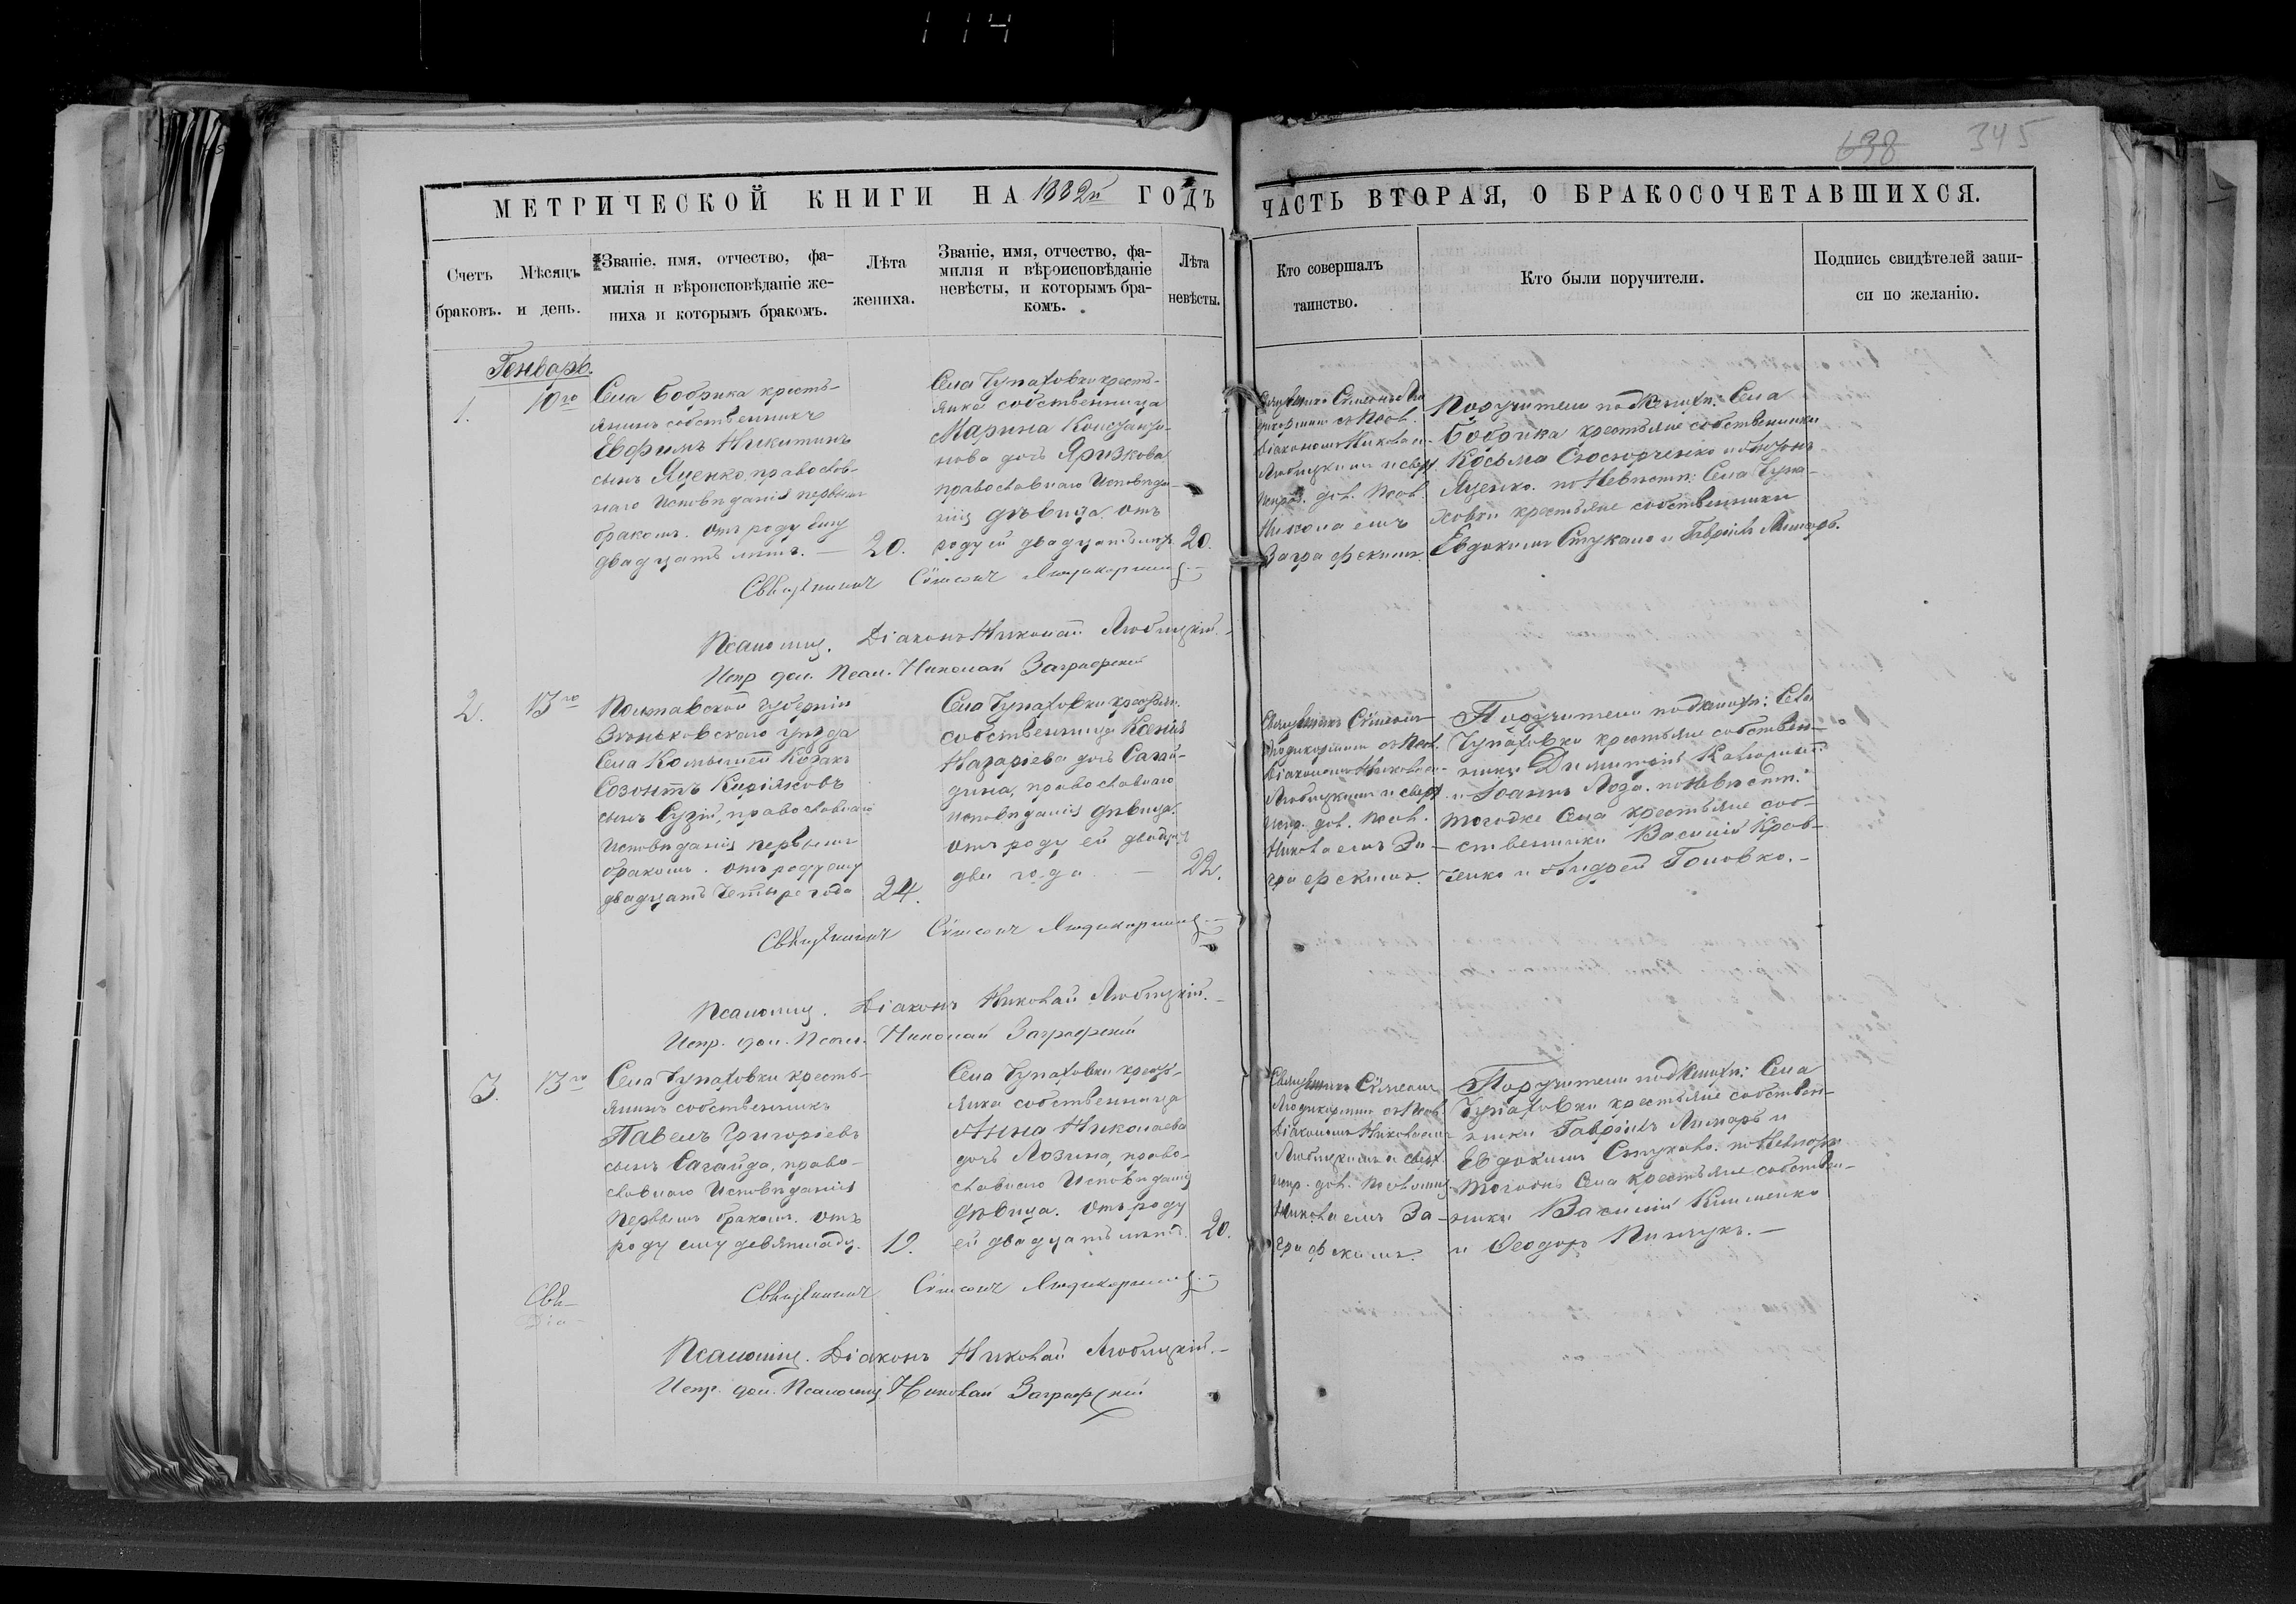 114
638 345
МЕТРИЧЕСКОЙ КНИГИ НА 1882й ГОДЪ
ЧАСТЬ ВТОРАЯ, О БРАКОСОЧЕТАВШИХСЯ.
Счетъ браковъ.
Мѣсяцъ и день.
Званіе, имя, отчество, фа-
милія и вѣроисповѣданіе же-
ниха и которымъ бракомъ.
Лѣта
жениха.
Званіе, имя, отчество, фа-
милія и вѣроисповѣданіе
невѣсты, и которымъ бра-
комъ.
Лѣта
невѣсты.
Кто совершалъ
таинство.
Кто были поручители.
Подпись свидѣтелей запи-
си по желанію.
Генварь.
1.
10го
Села Бобрика кресть-
янинъ собственникъ
Евфимъ Никитинъ
сынъ Яценко, православ-
наго исповѣданія первымъ
бракомъ. отъ роду ему
двадцать лѣтъ. —
20.
Села Чупаховки кресть-
янка собственница
Марина Константи-
нова дочь Яризкова
православнаго исповѣда-
нія дѣвица. отъ
роду ей двадцать лѣтъ
20.
Священникъ Сѵмеонъ
діакономъ Никола-
Любицкимъ и сверх
испр. дол. Псал.
Николаемъ
Заграфскимъ.
Поручители по женихѣ: Села
Бобрика крестьяне собственники
Косьма Слюсорченко и
Яценко. по Невѣстѣ: Села Чупа-
ховки крестьяне собственники
Евдокимъ Стукало и Гавріилъ Лимарь.
Священникъ Сѵмеонъ
Псаломщ. Діаконъ Николай Любицкій. —
Испр. дол. Псал. Николай Заграфскій
2.
13го
Полтавской губерніи
Зѣньковскаго уѣзда
Села Комышей Козакъ
Созонтъ Киріяковъ
сынъ Сузій, православнаго
исповѣданія первымъ
бракомъ. отъ роду ему
двадцать четыре года
24.
Села Чупаховки крестьян.
собственница Ксенія
Назаріева дочь Сагай-
дина, православнаго
исповѣданія дѣвица.
отъ роду ей двадцать
два года —
22.
Священникъ Сѵмеонъ
діакономъ Николаемъ
Любицкимъ и сверх
испр. дол. Псал.
Николаемъ За-
графскимъ.
Поручители по женихѣ: Села
Чупаховки крестьяне собствен-
ники Димитрій
и Іоаннъ Лоза. по Невѣстѣ:
тогоже Села крестьяне соб-
ственники Василій Крав-
ченко и Андрей Головко. —
Священникъ Сѵмеонъ
Псаломщ. Діаконъ Николай Любицкій. —
Испр. дол. Псал. Николай Заграфскій
3.
13го
Села Чупаховки кресть-
янинъ собственникъ
Павелъ Григоріевъ
сынъ Сагайда, право-
славнаго исповѣданія
первымъ бракомъ. отъ
роду ему девятнадц.
19.
Села Чупаховки кресть-
янка собственница
Анна Николаева
дочь Лозина, право-
славнаго исповѣданія
дѣвица. отъ роду
ей двадцать лѣтъ.
20.
Священникъ Сѵмеонъ
діакономъ Николаемъ
Любицкимъ и сверх
испр. дол. Псаломщ.
Николаемъ За-
графскимъ.
Поручители по женихѣ: Села
Чупаховки крестьяне собствен-
ники Гавріилъ Лимарь и
Евдокимъ Стукало. по Невѣстѣ:
тогожъ Села крестьяне собствен-
ники Василій Клименко
и Ѳеодоръ Пинчукъ. —
Свя-
Діа-
Священникъ Сѵмеонъ
Псаломщ. Діаконъ Николай Любицкій. —
Испр. дол. Псаломщ. Николай Заграфскій